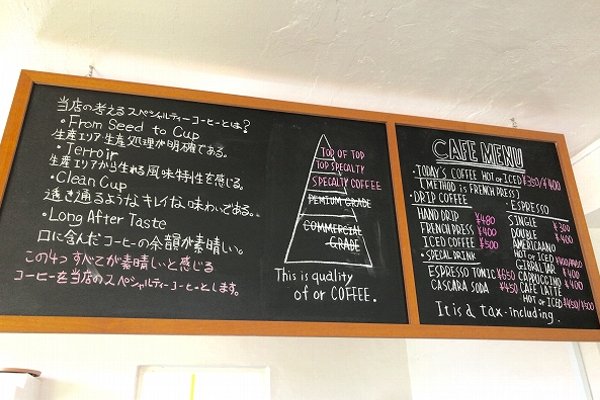 当店の考えるスペシャルティーコーヒーとは?
・From Seed to Cup
生産エリア・生産処理が明確である。
・Terroir
生産エリアから生れる風味特性を感じる。
・Clean Cup
透き通るようなキレイな味わいである。
・Long After Taste
口に含んだコーヒーの余韻が素晴しい。
この4つすべてが素晴しいと感じる
コーヒーを当店のスペシャルティーコーヒーとします。
TOP OF TOP
TOP SPECIALTY
SPECIALTY COFFEE
PEMIUM GRADE
COMMERCIAL
GRADE
This is quality
of or COFFEE.
CAFE MENU
・TODAY'S COFFEE HOT or ICED ¥350/¥400
[METHOD is FRENCH PRESS]
・DRIP COFFEE
HAND DRIP ¥480
FRENCH PRESS ¥400
ICED COFFEE ¥500
・SPECAL DRINK
ESPRESSO TONIC ¥650
CASCARA SODA ¥450
・ESPRESSO
SINGLE ¥300
DOUBLE ¥400
AMERICAANO
HOT or ICED
GIBRALTAR ¥400
CAPPUCCINO ¥400
CAFE LATTE
HOT or ICED ¥450/¥500
It is a tax-including.